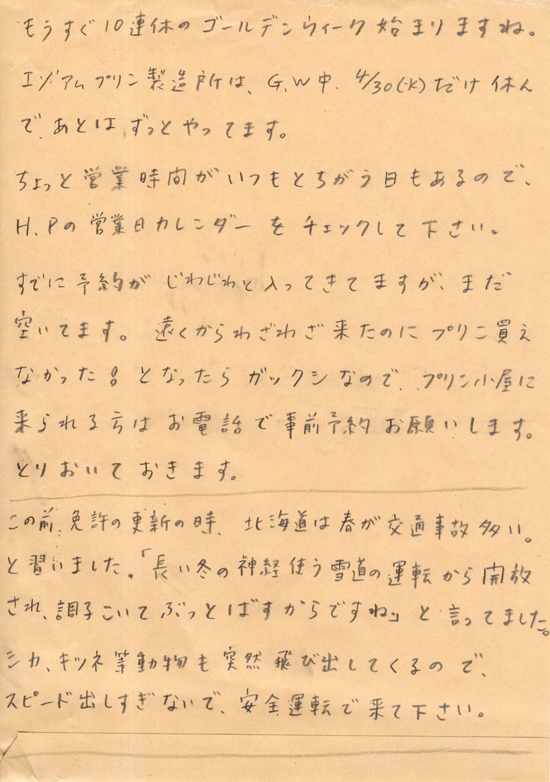 もうすぐ10連休のゴールデンウィーク始まりますね。
エゾアムプリン製造所は、G.W中、4/30(火)だけ休んで
、あとはずっとやってます。
ちょっと営業時間がいつもとちがう日もあるので、
H.Pの営業日カレンダーをチェックして下さい。
すでに予約がじわじわと入ってきてますが、まだ
空いてます。遠くからわざわざ来たのにプリン買え
なかった!!となったらガックシなので、プリン小屋に
来られる方はお電話で事前予約お願いします。
とりおいておきます。
この前、免許の更新の時、北海道は春が交通事故多い。
と習いました。「長い冬の神経使う雪道の運転から開放
され、調子こいてぶっとばすからですね」と言ってました。
シカ、キツネ等動物も突然飛び出してくるので、
スピード出しすぎないで、安全運転で来て下さい。